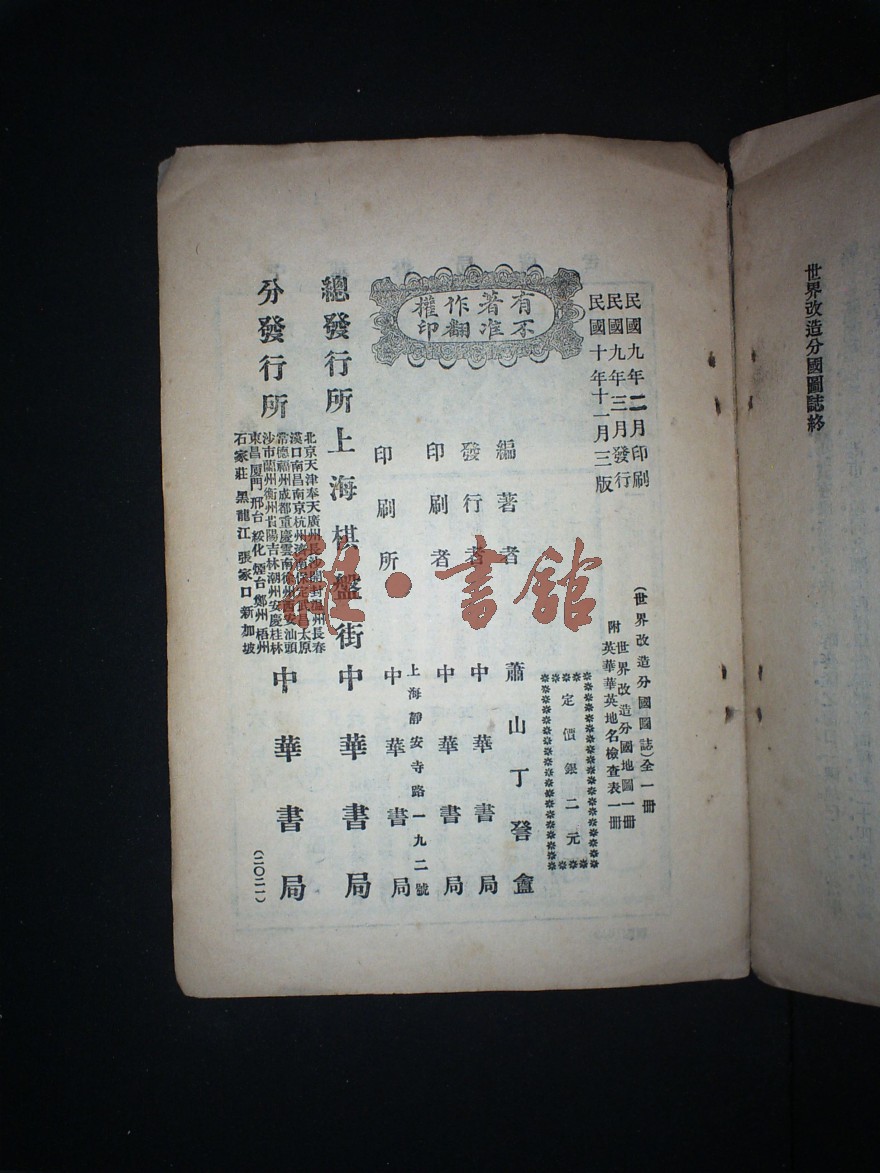 世界改造分國圖誌終
民國九年二月印刷
民國九年三月發行
民國十年十一月三版
有著作權
不准翻印
(世界改造分國圖誌)全一冊
附世界改造分國地圖一冊
英華華英地名檢查表一冊
定價銀二元
編著者 蕭山丁詧盦
發行者 中華書局
印刷者 中華書局
上海靜安寺路一九二號
印刷所 中華書局
總發行所 上海棋盤街 中華書局
分發行所
北京天津奉天廣州長沙開封溫州長春
漢口南昌南京杭州濟南保定武昌太原
常德福州成都重慶雲南徐州西安汕頭
沙市蘭州衢州貴陽吉林潮州安慶桂林
東昌厦門邢台綏化煙台鄭州梧州
石家莊黑龍江張家口新加坡
中華書局
(二〇二一)
書舘